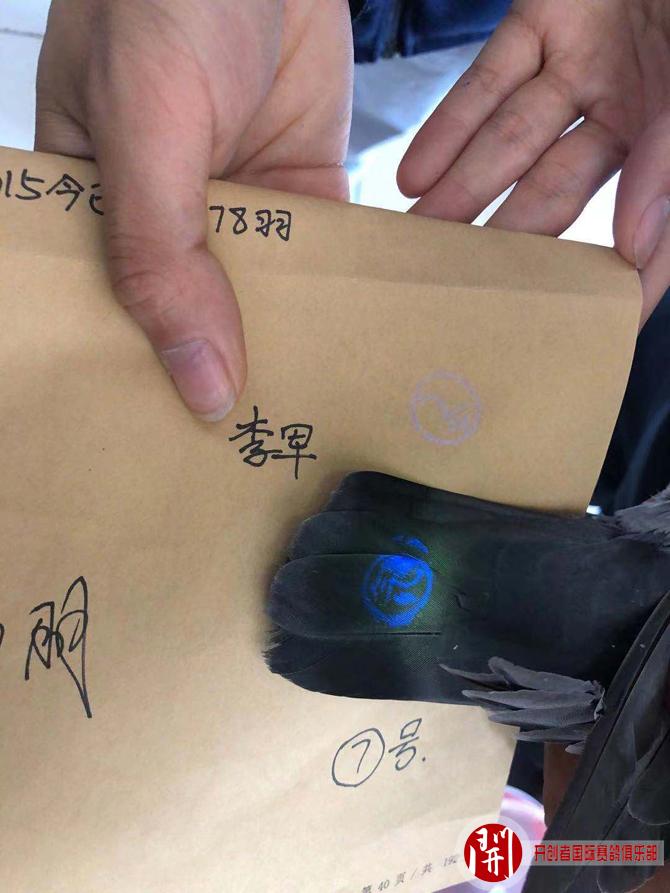 15今
78羽
李早
朋
⑦号.
第 40 页 / 共 192
開
开创者国际赛鸽俱乐部